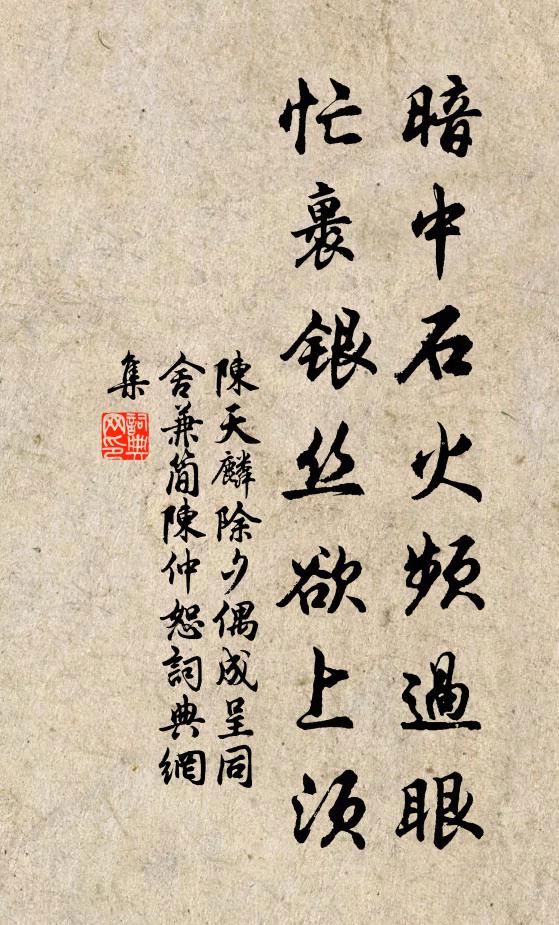 暗中石火頻過眼
忙裏銀丝欲上须
陳天麟除夕偶成呈同
舍兼简陳仲恕詞典網
集
詞典
网印